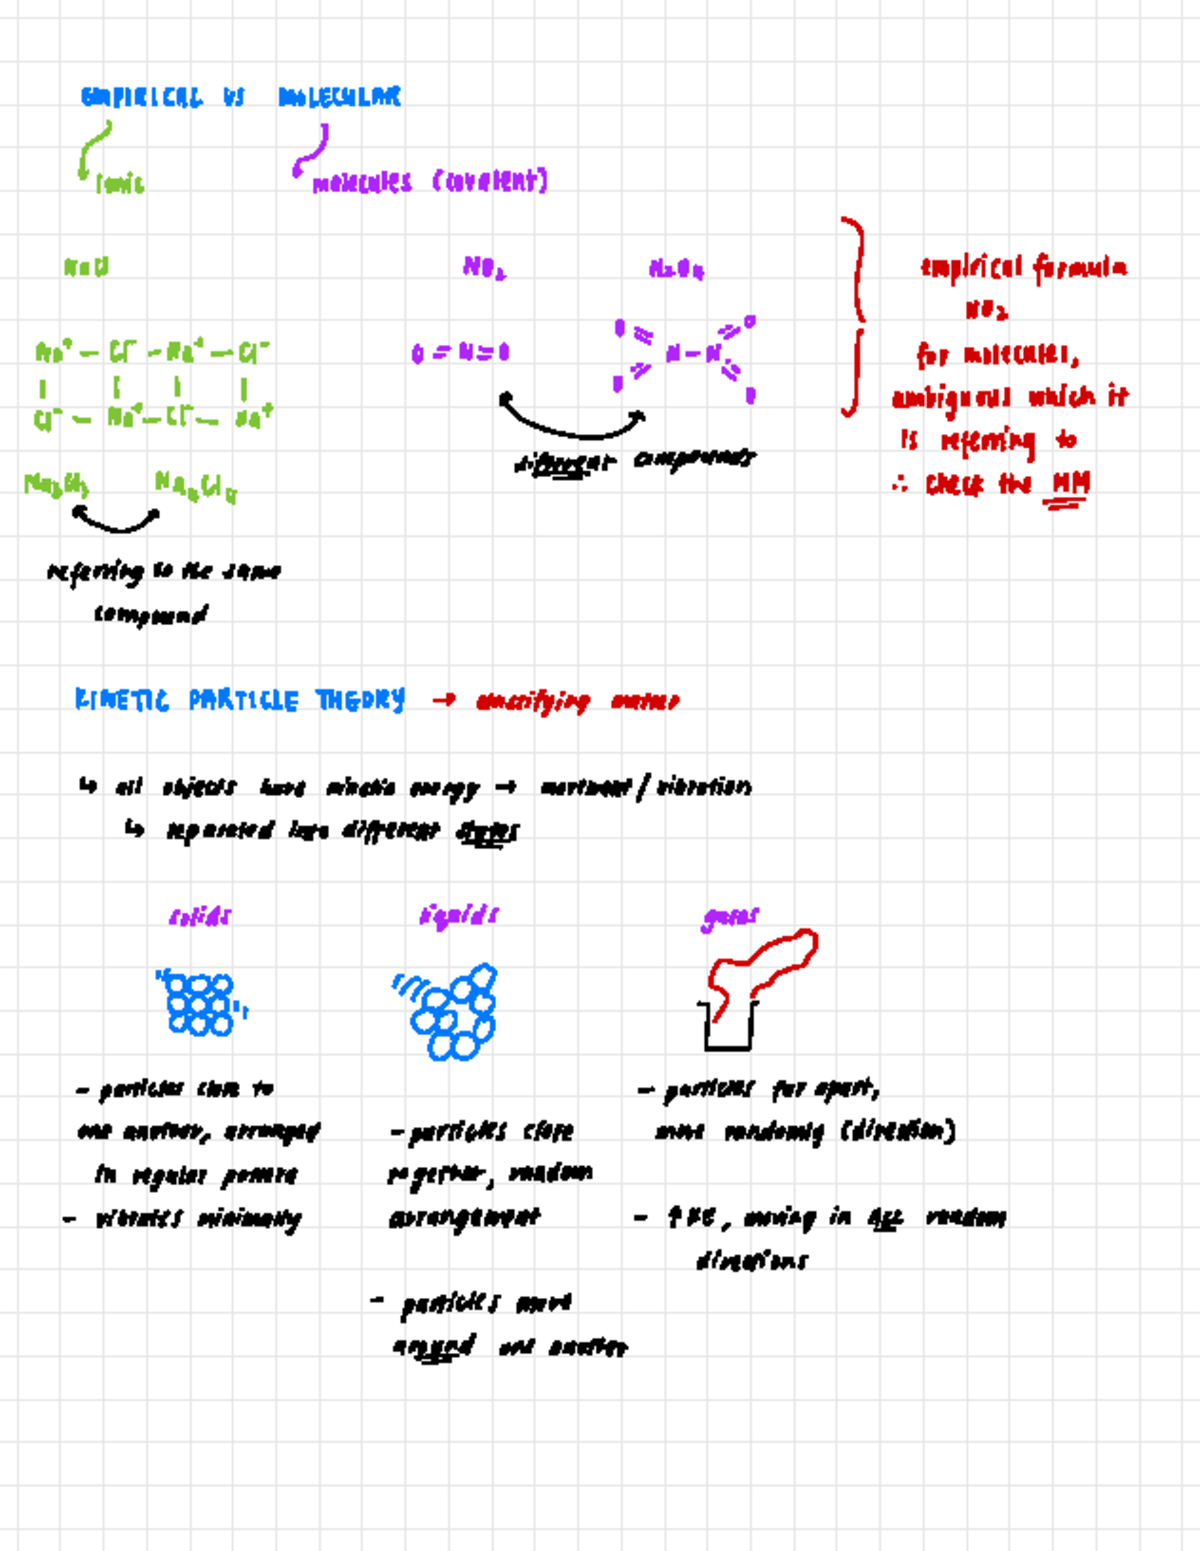 EMPIRICAL VS MOLECULAR
ionic
molecules (covalent)
NaCl
NO₂
N₂O₄
empirical formula
NO₂
for molecules,
ambiguous which it
is referring to
∴ check the MM
Na⁺ – Cl⁻ – Na⁺ – Cl⁻
Cl⁻ – Na⁺ – Cl⁻ – Na⁺
O = N = O
O O
N – N
O O
different compounds
Na₄Cl₄
referring to the same
compound
KINETIC PARTICLE THEORY → classifying matter
↳ all objects have kinetic energy → movement / vibration
↳ separated into different states
solids
liquids
gases
- particles close to
one another, arranged
in regular
- vibrates minimally
- particles close
together, random
arrangement
- particles move
around one another
- particles far apart,
move randomly (direction)
- ↑ KE, moving in ALL random
directions